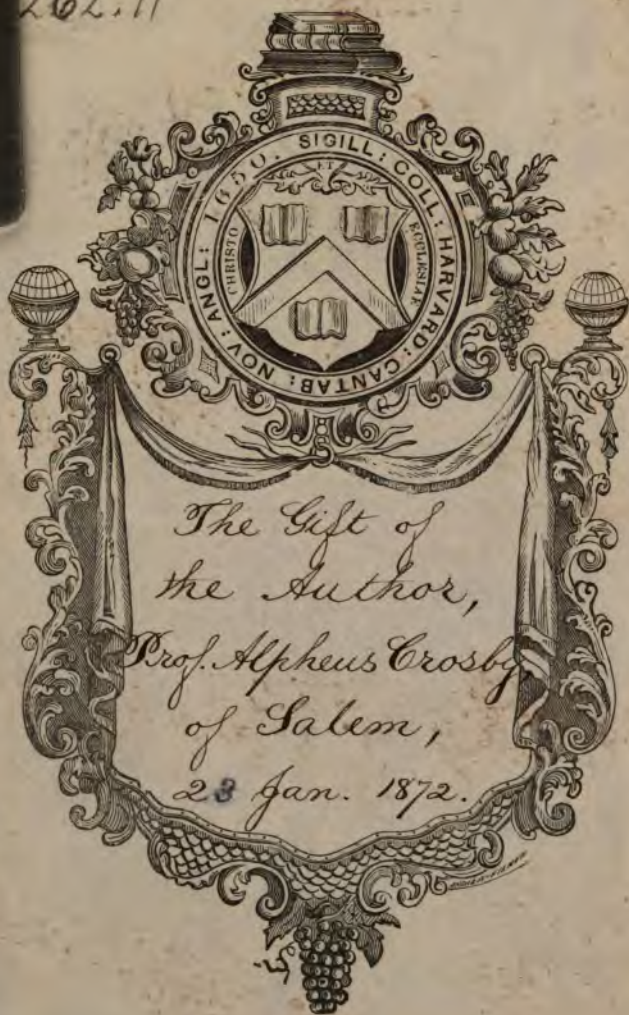 262.11
SIGILL: COLL: HARVARD: CANTAB: NOV: ANGL: 1650.
ET
CHRISTO
ECCLESIAE
The Gift of
the Author,
Prof. Alpheus Crosby,
of Salem,
23 Jan. 1872.